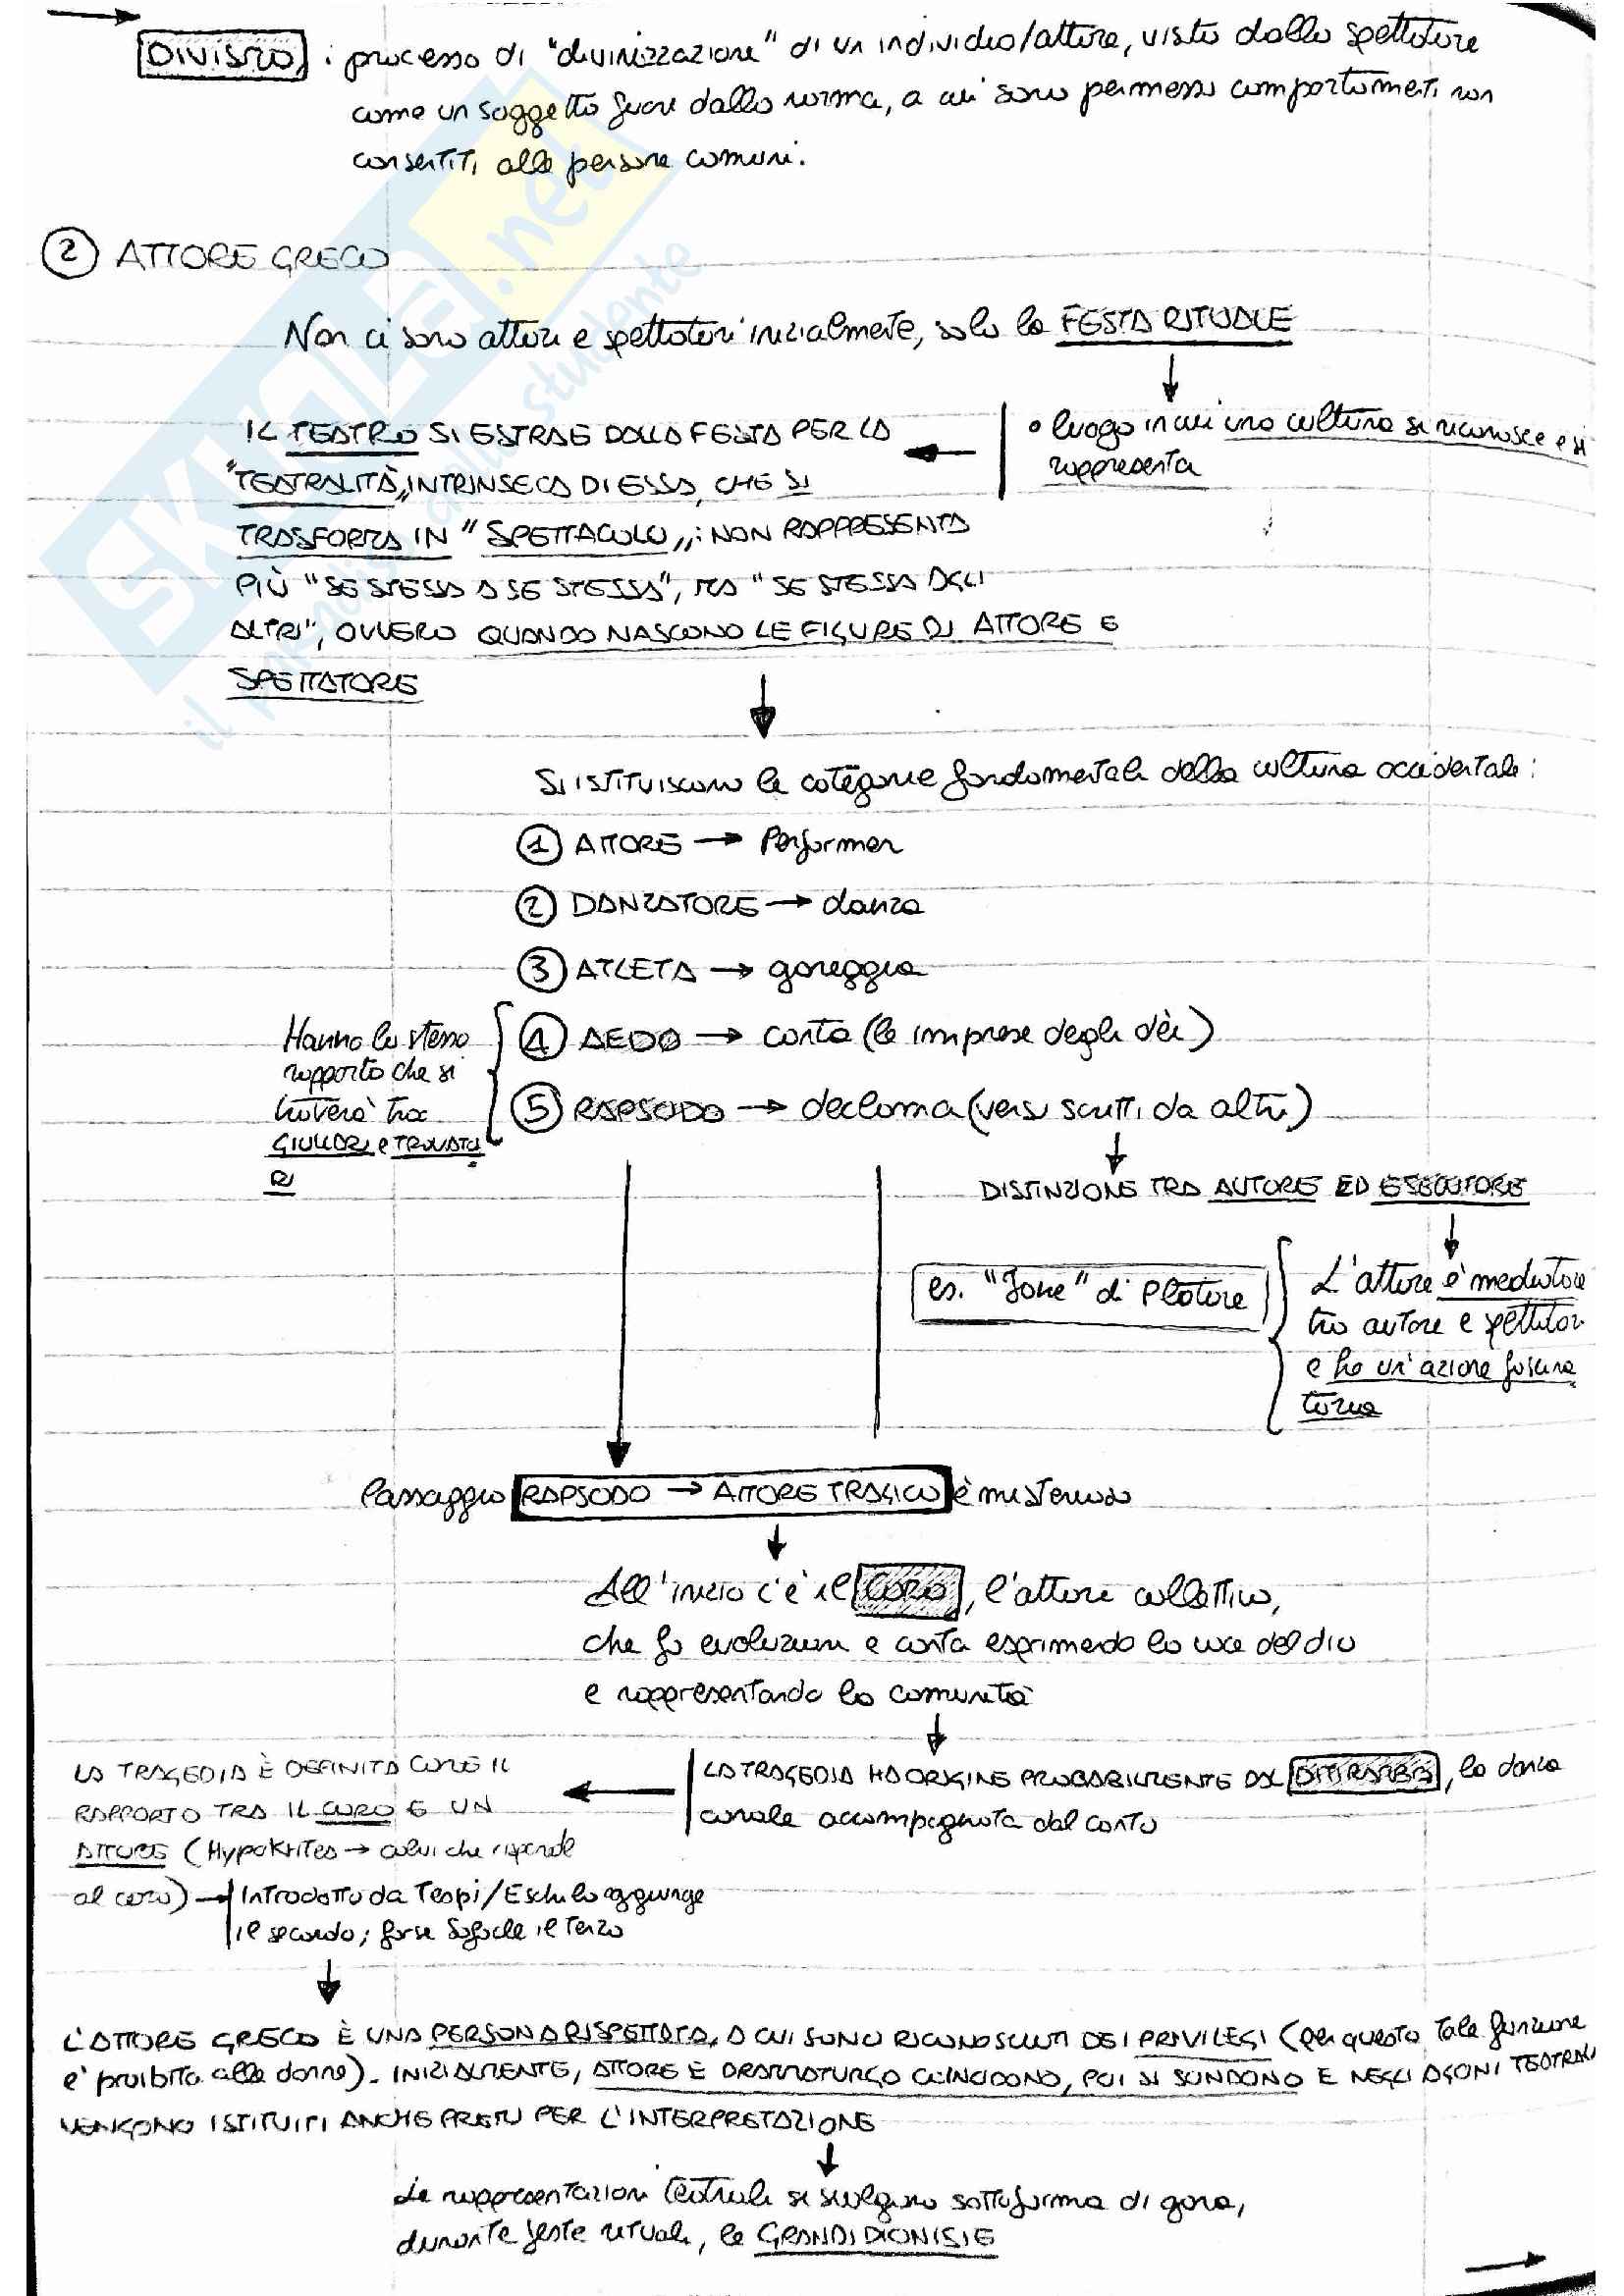 DIVISMO : processo di "divinizzazione" di un individuo/attore, visto dallo spettatore
come un soggetto fuori dalla norma, a cui sono permessi comportamenti non
consentiti alle persone comuni.
2 ATTORE GRECO
Non ci sono attori e spettatori inizialmente, solo la FESTA RITUALE
• luogo in cui una cultura si riconosce e si
rappresenta
IL TEATRO SI ESTRAE DALLA FESTA PER LA
"TEATRALITÀ" INTRINSECA DI ESSA, CHE SI
TRASFORMA IN "SPETTACOLO": NON RAPPRESENTA
PIÙ "SE STESSA A SE STESSA", MA "SE STESSA AGLI
ALTRI", OVVERO QUANDO NASCONO LE FIGURE DI ATTORE E
SPETTATORE
SI ISTITUISCONO le categorie fondamentali della cultura occidentale:
1 ATTORE → Performer
2 DANZATORE → danza
3 ATLETA → gareggia
4 AEDO → canta (le imprese degli dèi)
5 RAPSODO → declama (versi scritti da altri)
Hanno lo stesso
rapporto che si
troverà tra
GIULLARI e TROVATO
RI
DISTINZIONE TRA AUTORE ED ESECUTORE
es. "Ione" di Platone
L'attore è mediatore
tra autore e spettator
e ha un'azione fascina
toria
Passaggio RAPSODO → ATTORE TRAGICO è misterioso
All'inizio c'è il CORO, l'attore collettivo,
che fa evoluzioni e canta esprimendo la voce del dio
e rappresentando la comunità
LA TRAGEDIA HA ORIGINE PROBABILMENTE DAL DITIRAMBO, la danza
corale accompagnata dal canto
LA TRAGEDIA È DEFINITA COME IL
RAPPORTO TRA IL CORO E UN
ATTORE (Hypokrites → colui che risponde
al coro) → Introdotto da Tespi/Eschilo aggiunge
il secondo; forse Sofocle il terzo
L'ATTORE GRECO È UNA PERSONA RISPETTATA, A CUI SONO RICONOSCIUTI DEI PRIVILEGI (per questo tale funzione
è proibita alle donne). INIZIALMENTE, ATTORE E DRAMMATURGO COINCIDONO, POI SI SCINDONO E NEGLI AGONI TEATRALI
VENGONO ISTITUITI ANCHE PREMI PER L'INTERPRETAZIONE
Le rappresentazioni teatrali si svolgono sottoforma di gara,
durante feste rituali, le GRANDI DIONISIE